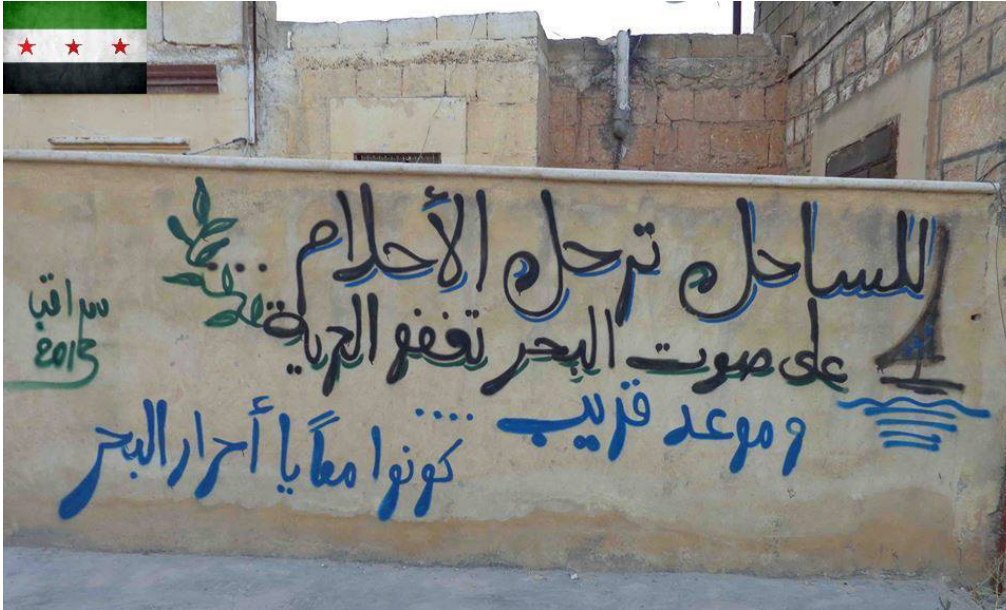 للساحل ترحل الأحلام ...
على صوت البحر تغفو الحرية ...
وموعد قريب ....
كونوا معاً يا أحرار البحر
سراقب
2013